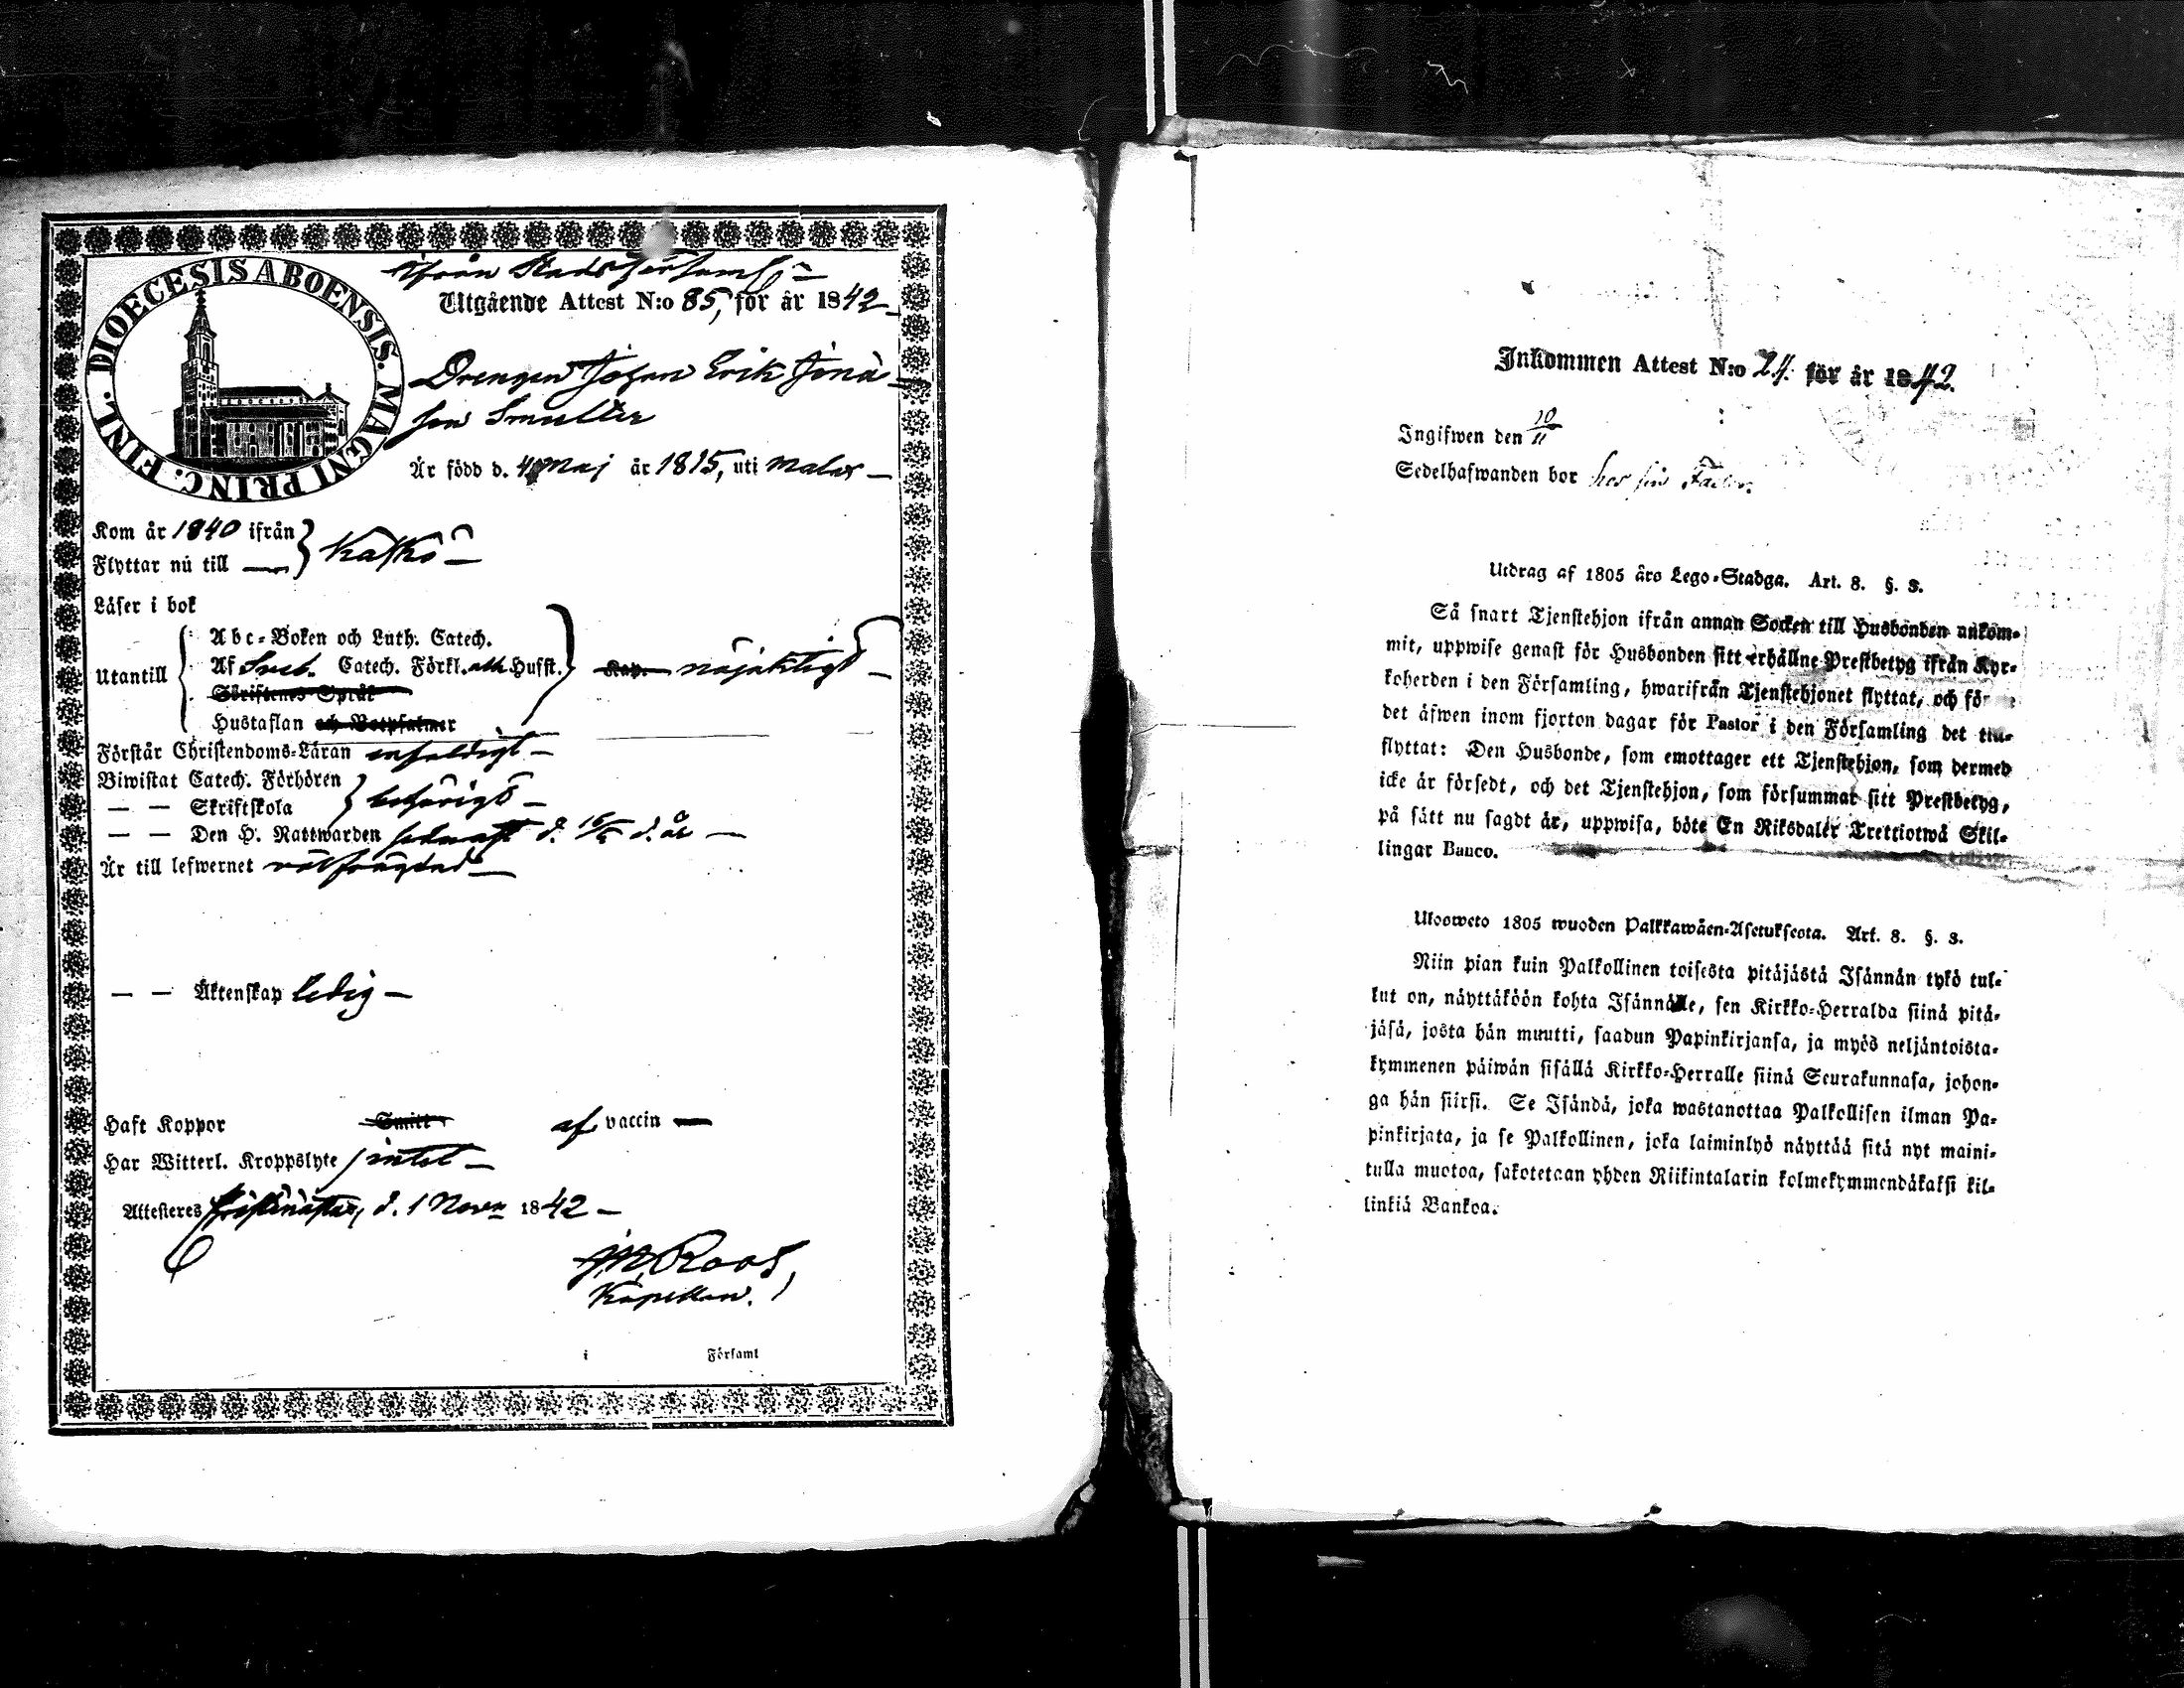 DIOECESIS ABOENSIS. MAGNI PRINC. FINL.
ifrån Stadsförsaml.
Utgående Attest N:o 85, för år 1842
Drengen Johan Erik Jonas-
son Smulter
Är född d. 4 Maj år 1815, uti Malax
Kom år 1840 ifrån
Flyttar nu till
Kaskö
Läser i bok
Utantill
Abc-Boken och Luth. Catech.
Af Sveb. Catech. Förkl. Husst.
nöjaktigt
Skriftenes Språk
Hustaflan och Botpsalmer
Förstår Christendoms-Läran enfaldigt
Biwistat Catech. Förhören
— — Skriftskola
behörigt
— — Den H. Nattwarden sednast d. d. år
Är till lefwernet välfrägdad
— — Äktenskap ledig
Haft Koppor Smitt af vaccin
Har Witterl. Kroppslyte intet
Attesteres Christinestad, d. 1 Novem 1842
Roos,
Kapellan.
i Församl
Inkommen Attest N:o 24. för år 1842.
Ingifwen den 10/11
Sedelhafwanden bor hos sin Fader.
Utdrag af 1805 års Lego-Stadga. Art. 8. §. 3.
Så snart Tjenstehjon ifrån annan Socken till Husbonden ankom-
mit, uppwise genast för Husbonden sitt erhållne Prestbetyg ifrån Kyr-
koherden i den Församling, hwarifrån Tjenstehjonet flyttat, och
det äfwen inom fjorton dagar för Pastor i den Församling det
flyttat: Den Husbonde, som emottager ett Tjenstehjon, som dermed
icke är försedt, och det Tjenstehjon, som försummat sitt Prestbetyg,
på sätt nu sagdt är, uppwisa, böte En Riksdaler Trettiotwå Skil-
lingar Banco.
Ulosweto 1805 wuoden Palkkawäen-Asetuksesta. Art. 8. §. 3.
Niin pian kuin Palkollinen toisesta pitäjästä Isännän tykö tul-
lut on, näyttäköön kohta Isännälle, sen Kirkko-Herralda siinä pitä-
jäsä, josta hän muutti, saadun Papinkirjansa, ja myös neljäntoista-
kymmenen päiwän sisällä Kirkko-Herralle siinä Seurakunnasa, johon-
ga hän siirsi. Se Isändä, joka wastanottaa Palkollisen ilman Pa-
pinkirjata, ja se Palkollinen, joka laiminlyö näyttää sitä nyt maini-
tulla muotoa, sakotetaan yhden Riikintalarin kolmekymmendäkaksi kil-
linkiä Bankoa.